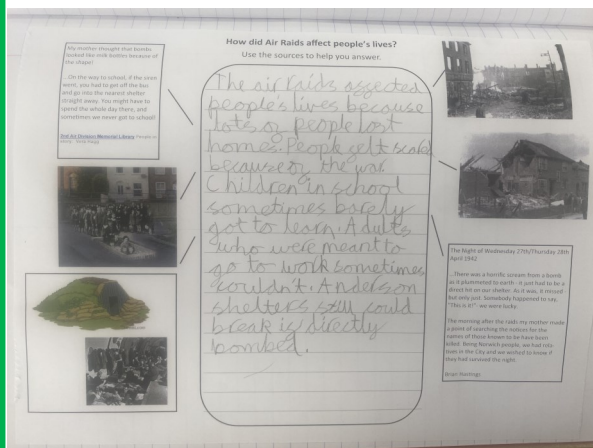 How did Air Raids affect people's lives?
Use the sources to help you answer.
My mother thought that bombs
looked like milk bottles because of
the shape!
...On the way to school, if the siren
went, you had to get off the bus
and go into the nearest shelter
straight away. You might have to
spend the whole day there, and
sometimes we never got to school!
2nd Air Division Memorial Library
The air raids affected
people's lives because
lots of people lost
homes. People felt scared
because of the war.
Children in school
sometimes barely
got to learn. Adults
who were meant to
go to work sometimes
couldn't. Anderson
shelters still could
break if directly
bombed.
The Night of Wednesday 27th/Thursday 28th
April 1942
...There was a horrific scream from a bomb
as it plummeted to earth - it just had to be a
direct hit on our shelter. As it was, it missed
but only just. Somebody happened to say,
"This is it!"- we were lucky.
The morning after the raids my mother made
a point of searching the notices for the
names of those known to be have been
killed. Being Norwich people, we had rela-
tives in the City and we wished to know if
they had survived the night.
Brian Hastings